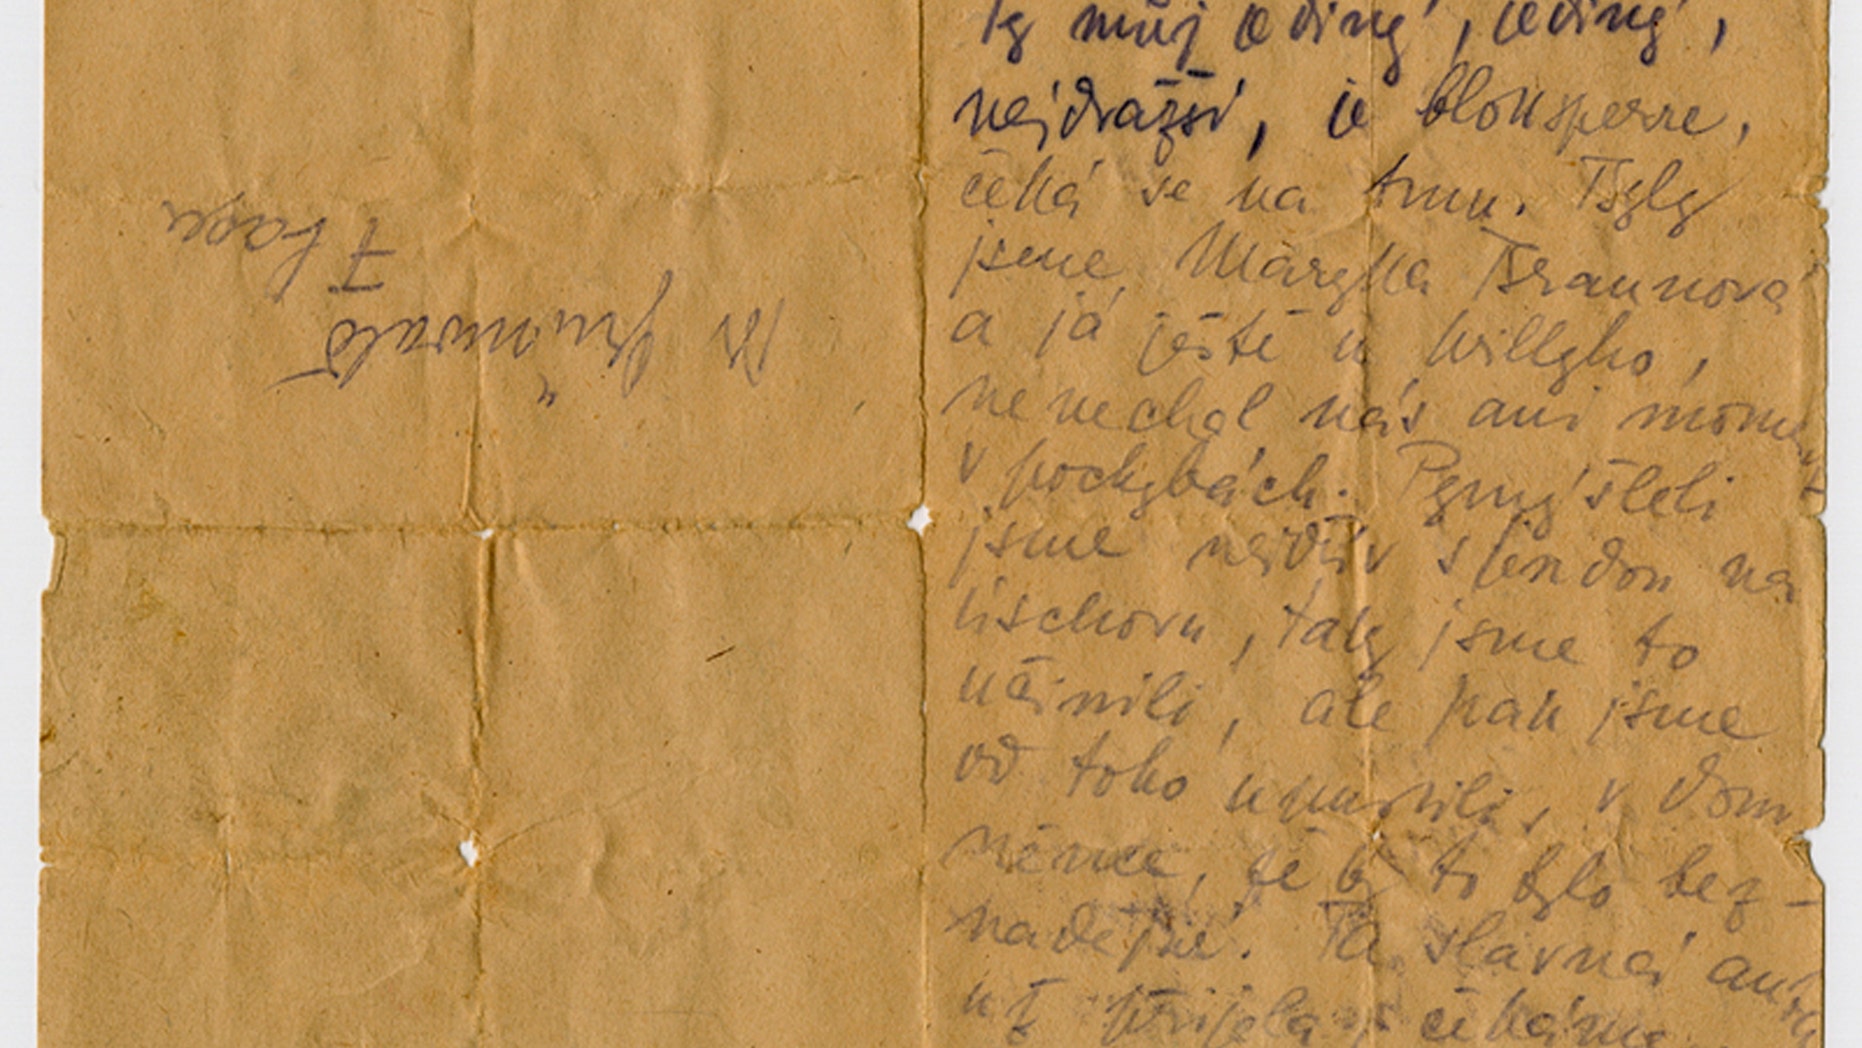 Ty můj jediný, jediný,
nejdražší, je bloksperre,
čeká se na tmu. Byly
jsme, Maryka Braunová
a já ještě u Willyho,
nenechal nás ani moment
v pochybách. Pomýšleli
jsme nejdřív s jendou na
lischovu, taky jsme to
učinili, ale pak jsme
od toho upustili, v dom
něnce, že by to bylo bez-
nadějné. Ta slavná auta
už přijela, čekáme
Dr Grünwald